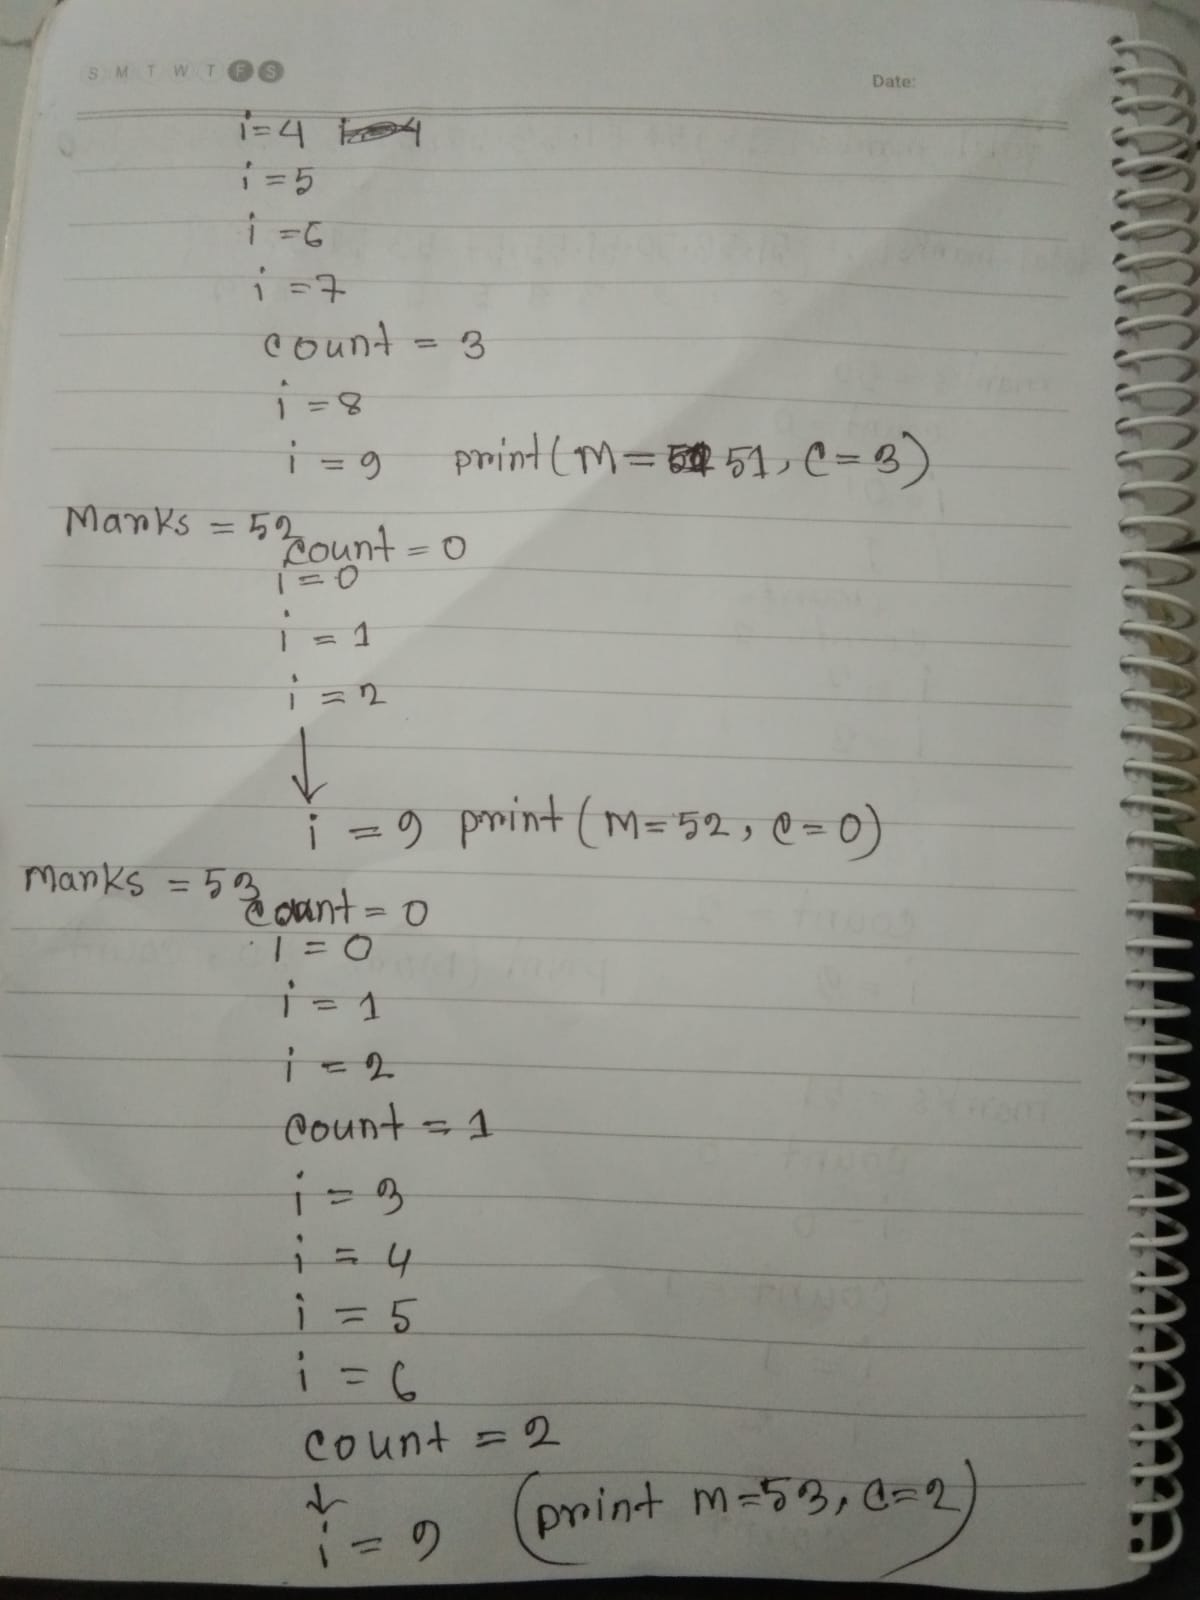 S M T W T F S
Date:
i=4
i=5
i=6
i=7
count = 3
i=8
i=9 print(M= 51, C=3)
Marks = 52
count=0
i=0
i=1
i=2
↓
i=9 print(M=52, C=0)
Marks = 53
count=0
i=0
i=1
i=2
count=1
i=3
i=4
i=5
i=6
count=2
↓
i=9 (print m=53, C=2)